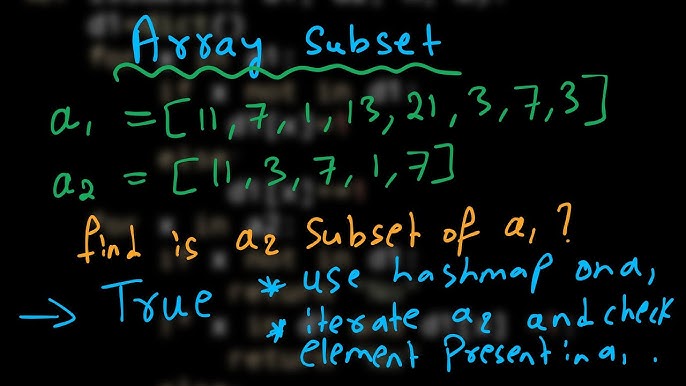 Array Subset
a1 = [11, 7, 1, 13, 21, 3, 7, 3]
a2 = [11, 3, 7, 1, 7]
find is a2 subset of a1 ?
→ True
* use hashmap on a1
* iterate a2 and check
element Present in a1 .